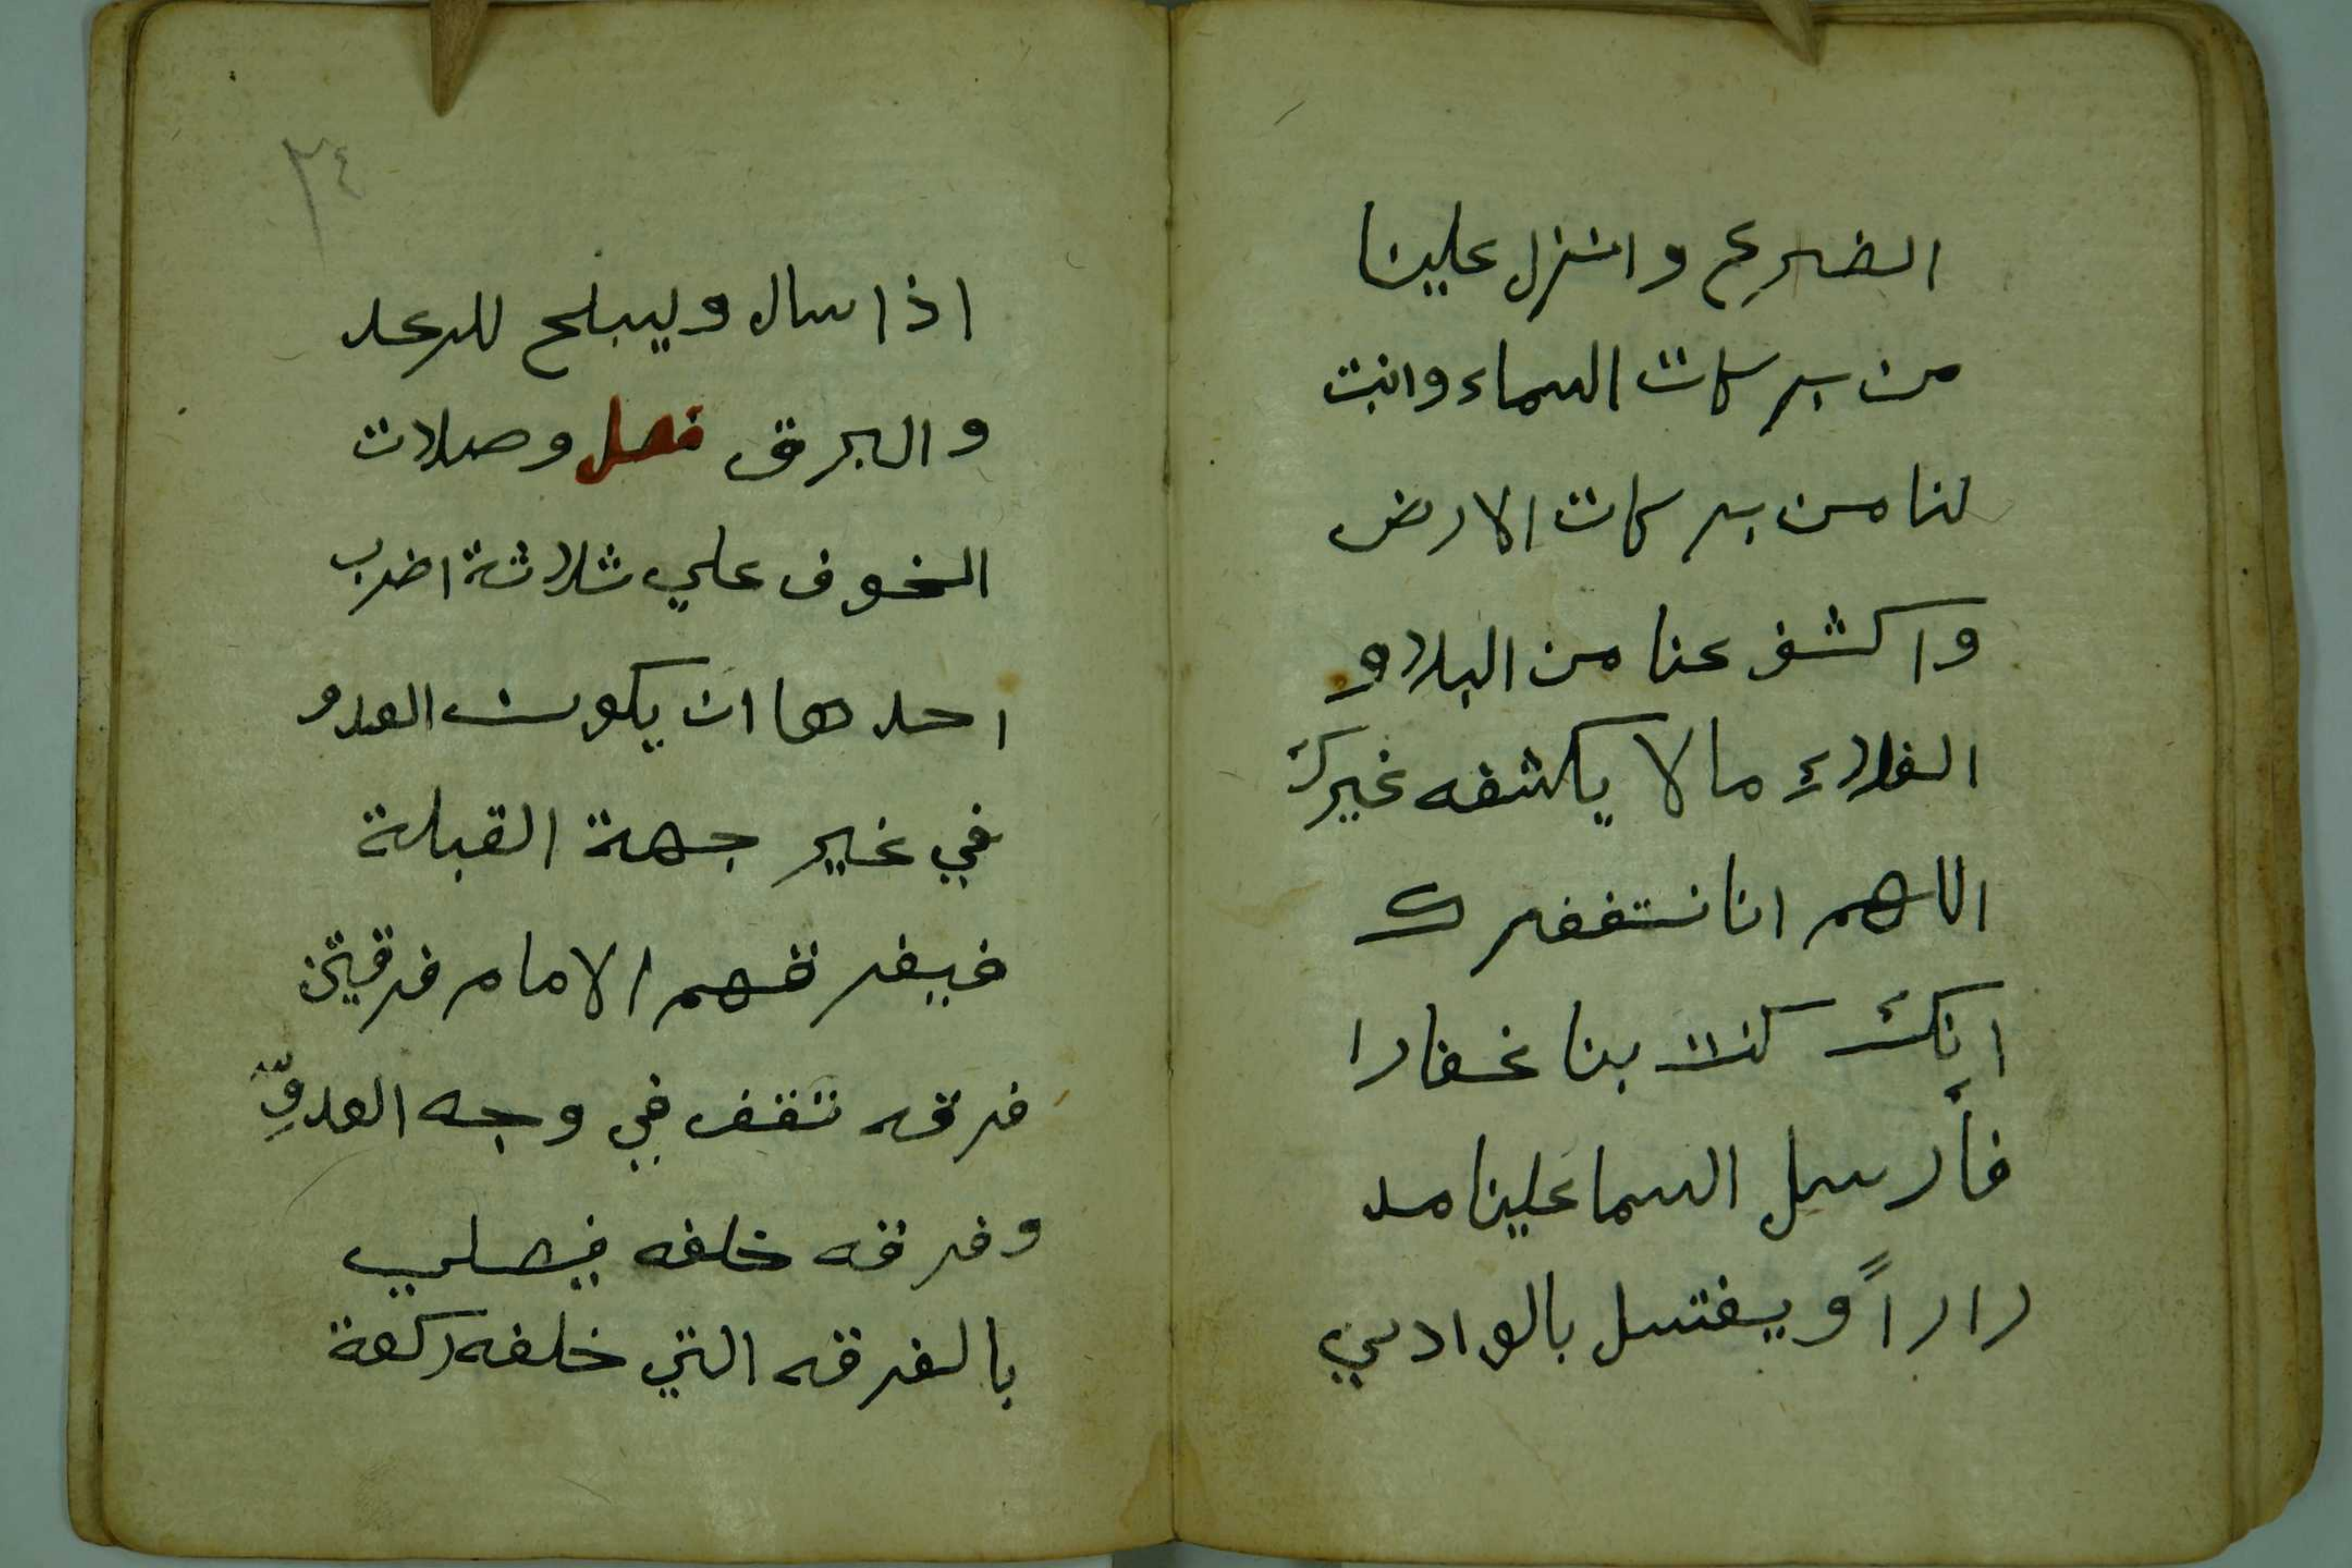 الضرع وانزل علينا
من بركات السماء وانبت
لنا من بركات الارض
واكشف عنا من البلاو
الغلاء ما لا يكشفه غيرك
اللهم انا نستغفرك
انك كنت بنا غفارا
فأرسل السما علينا مد
راراً ويغتسل بالوادي
٢٤
اذا سال ويسبح للرعد
والبرق فصل وصلات
الخوف علي ثلاثة اضرب
احدها ان يكون العدو
في غير جهة القبلة
فيفرقهم الامام فرقتين
فرقه تقف في وجه العدوّ
وفرقه خلفه فيصلي
بالفرقه التي خلفه ركعة